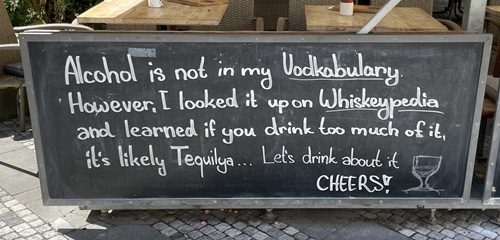 Alcohol is not in my Vodkabulary.
However, I looked it up on Whiskeypedia
and learned if you drink too much of it,
it's likely Tequilya... Let's drink about it
CHEERS!